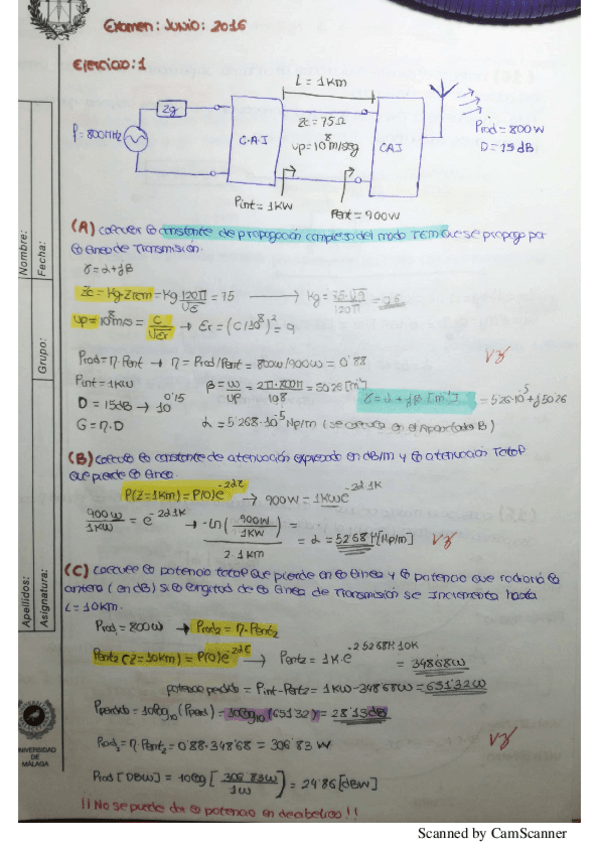 Examen: Junio: 2016
Ejercicio: 1
L = 1km
Zg
f=800MHz
G.A.I
Zc = 75Ω
vp=10⁸ m/seg
CAI
Prad = 800W
D = 15dB
Pint = 1KW
Pent = 900W
(A) calcular la constante de propagación compleja del modo TEM que se propaga por
la línea de Transmisión.
γ = α + jβ
Zc = Kg·ZTEM = Kg 120π/√εr = 75 → Kg = 75·√9/120π = 0'6
vp = 10⁸ m/s = c/√εr → εr = (c/10⁸)² = 9
Prad = η·Pent → η = Prad/Pent = 800w/900w = 0'88
Pint = 1KW
β = w/vp = 2π·800M/10⁸ = 50'26 [m⁻¹]
D = 15dB → 10^0'15
γ = α + jβ [m⁻¹] = 5'26·10⁻⁵ + j50'26
G = η·D
α = 5'268·10⁻⁵ Np/m (se calcula en el Apartado B)
(B) calcula la constante de atenuación expresado en dB/m y la atenuación Total
que pierde la línea.
P(z=1km) = P(0)e^-2αz → 900w = 1kw e^-2α1K
900w/1KW = e^-2α1K → -ln(900W/1KW)/2·1km = α = 52'68 μ [Np/m]
(C) calcule la potencia total que pierde en la línea y la potencia que radiaría la
antena (en dB) si la longitud de la línea de Transmisión se Incrementa hasta
L = 10km.
Prad₁ = 800w → Prad₂ = η·Pent₂
Pent₂ (z=10km) = P(0)e^-2αz → Pent₂ = 1K·e^-2·52'68μ·10K = 348'68W
potencia perdida = Pint - Pent₂ = 1KW - 348'68W = 651'32W
Pperdida = 10log₁₀(Pperd) = 10log₁₀(651'32) = 28'13dB
Prad₂ = η·Pent₂ = 0'88·348'68 = 306'83 W
Prad [dBW] = 10log [306'83W/1W] = 24'86 [dBW]
!! No se puede dar la potencia en decibelios !!
Nombre:
Fecha:
Grupo:
Apellidos:
Asignatura:
UNIVERSIDAD
DE
MÁLAGA
Scanned by CamScanner